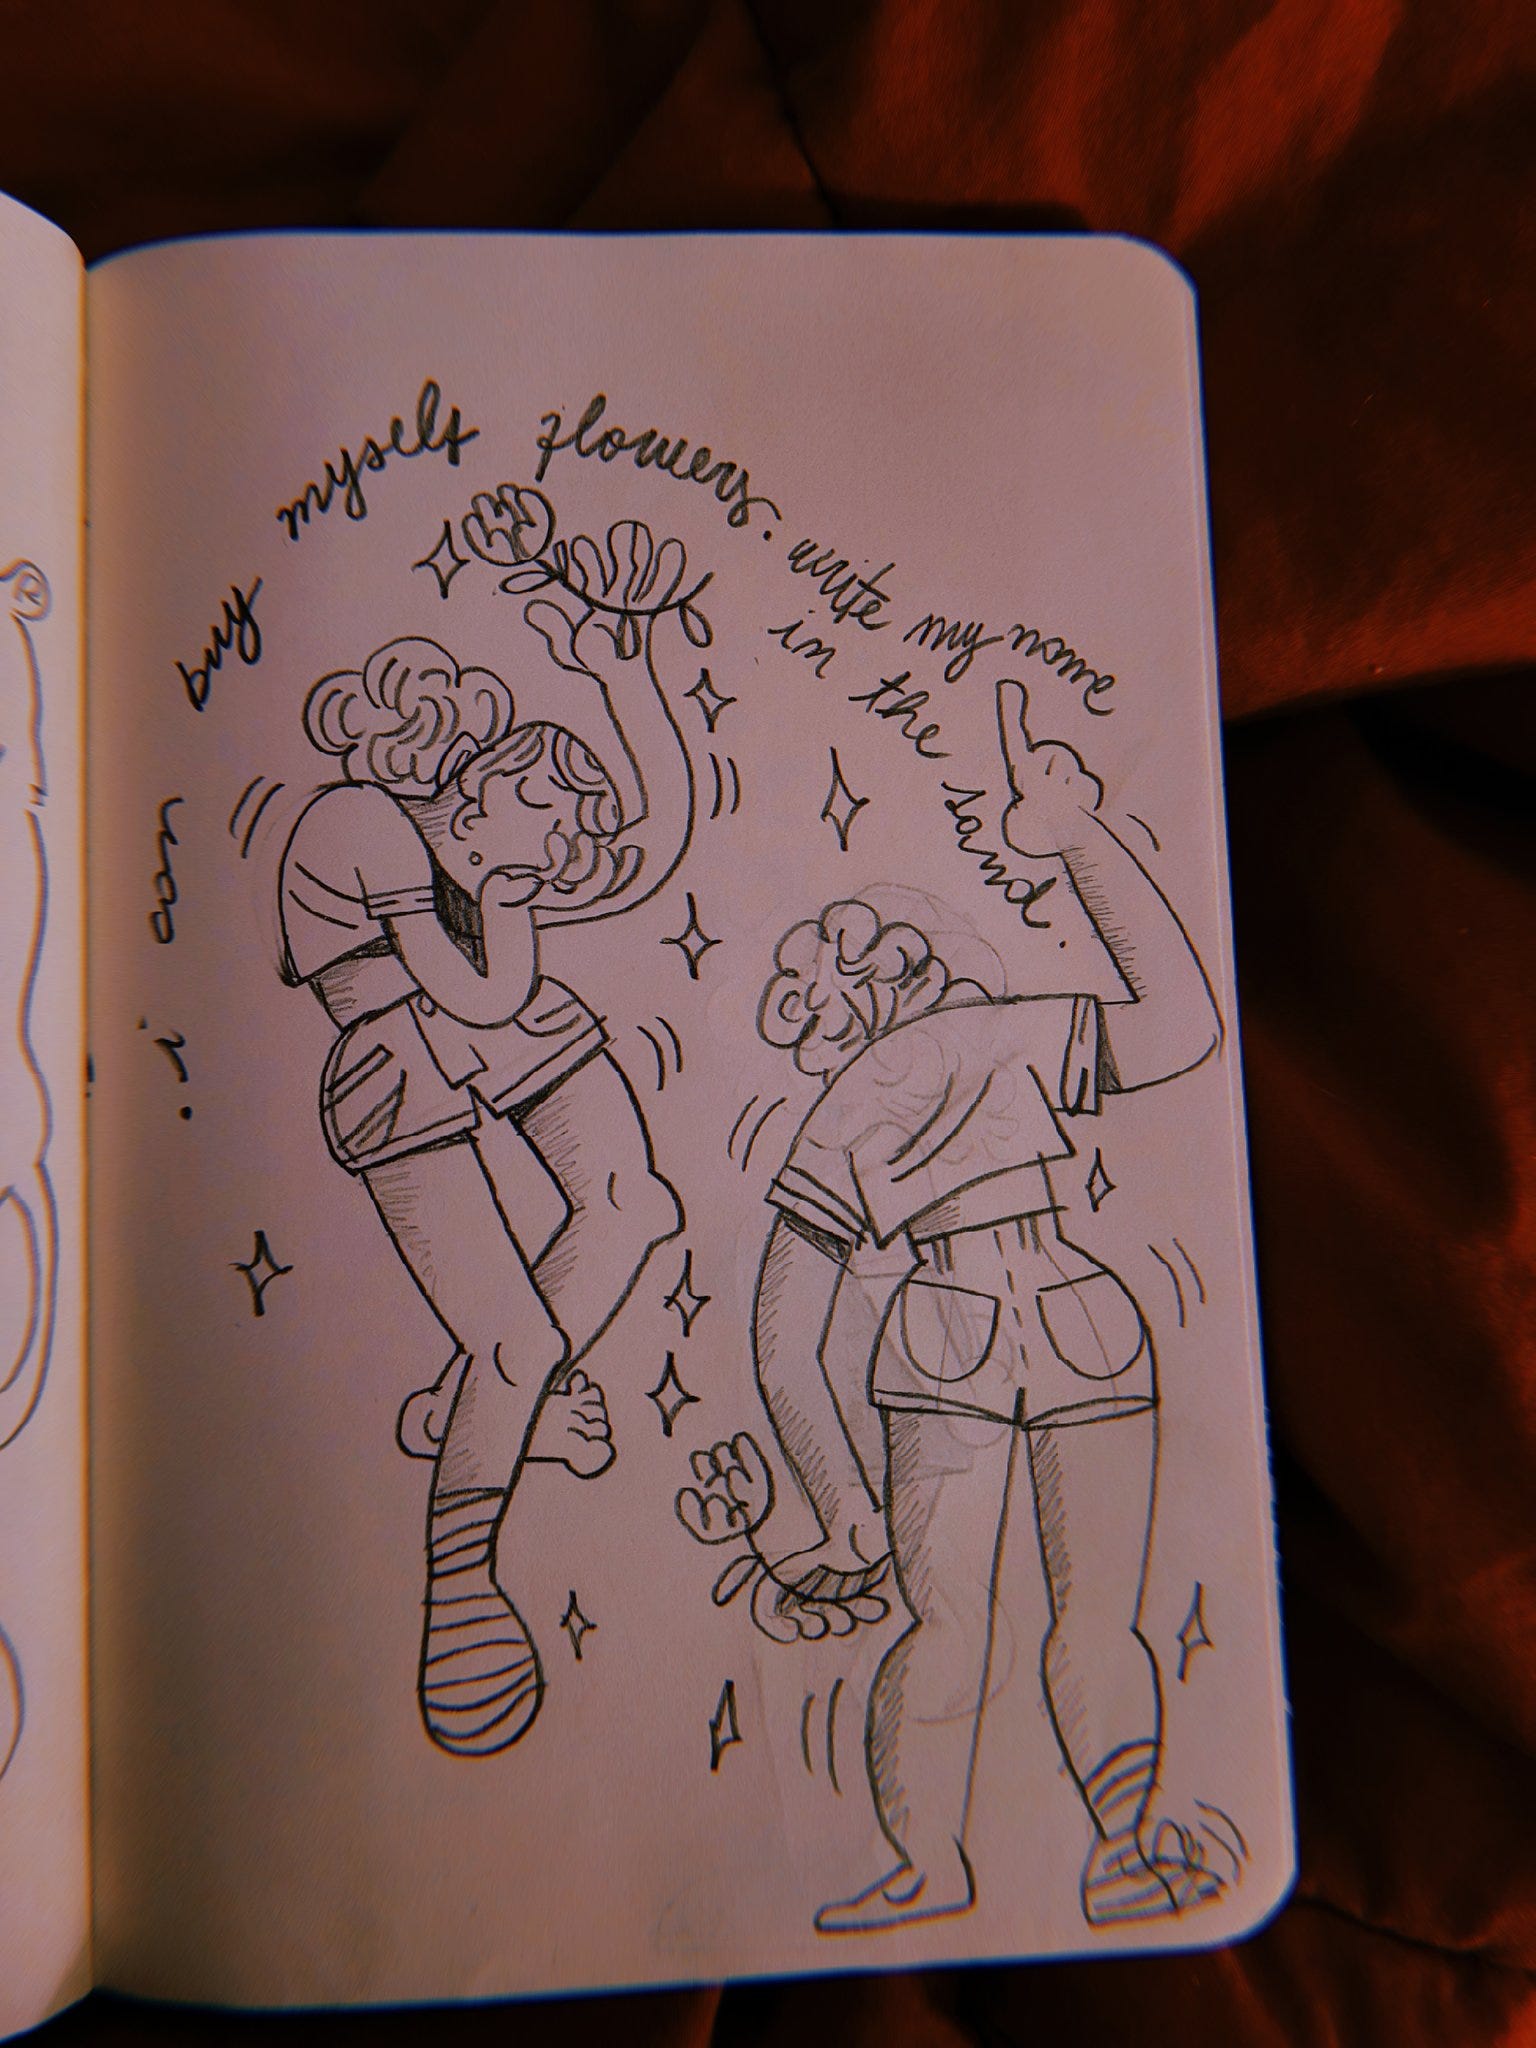 . i can buy myself flowers. write my name
in the sand.